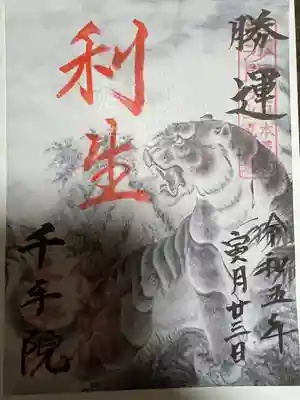 勝運
令和五年
寅月廿三日
利生
千手院